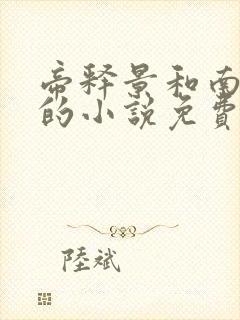 帝释景和南
的小説免費
陸斌